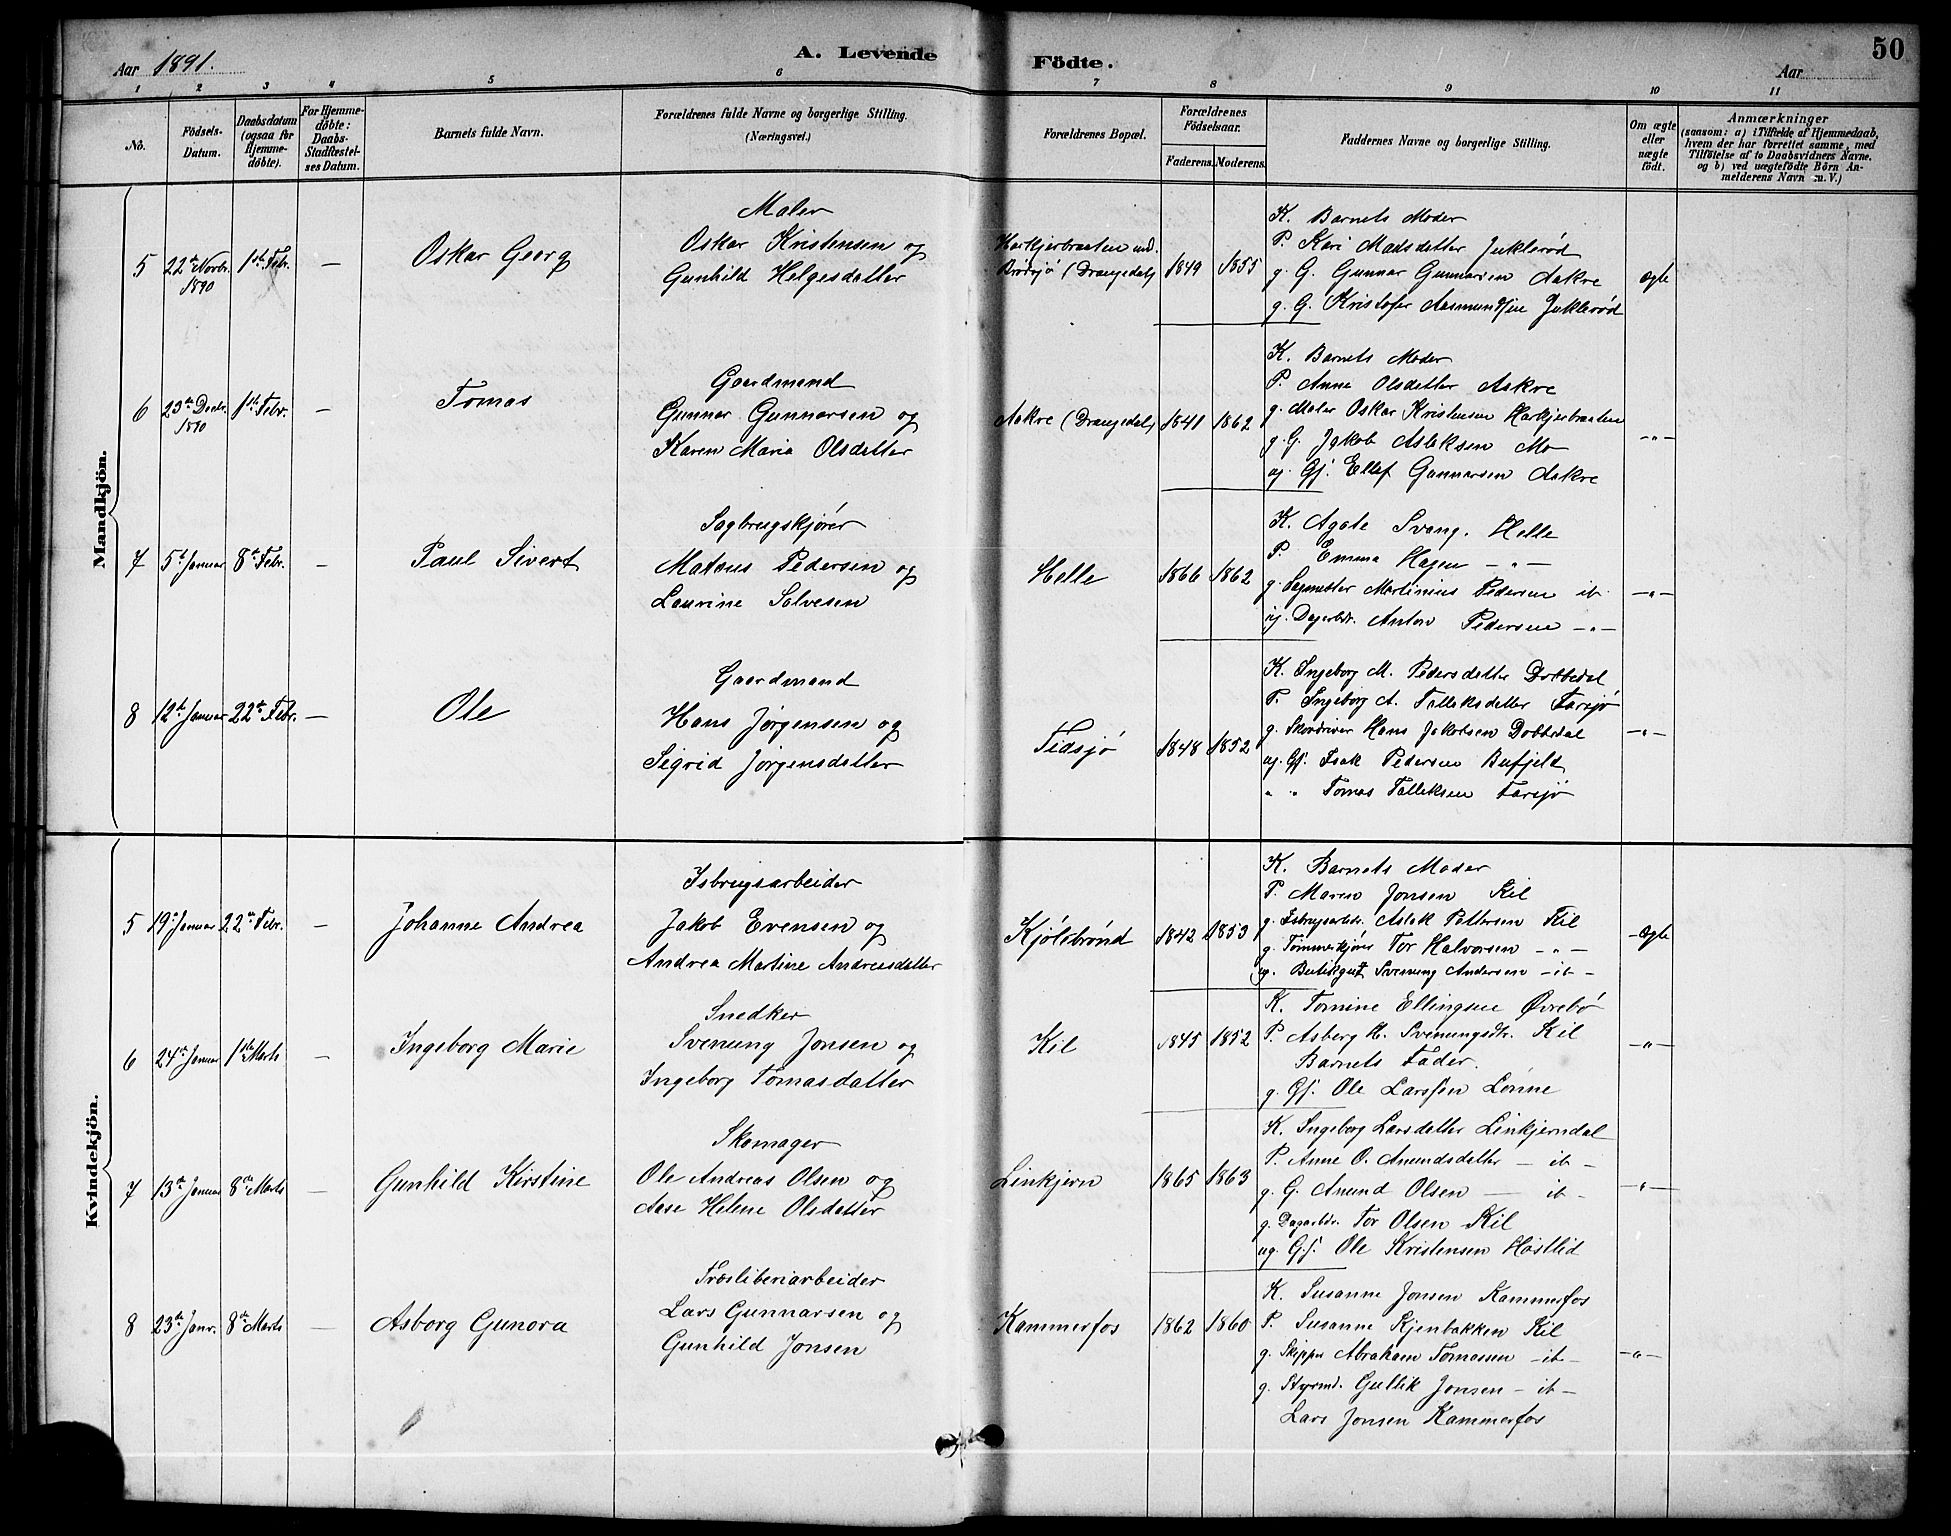 Aar 1891.
A. Levende Födte.
50
Aar
1 2 3 4 5 6 7 8 9 10 11
No.
Födsels-Datum.
Daabsdatum (ogsaa for Hjemmedöbte).
For Hjemmedöbte: Daabs-Stadfæstelses Datum.
Barnets fulde Navn.
Forældrenes fulde Navne og borgerlige Stilling. (Næringsvei.)
Forældrenes Bopæl.
Forældrenes Födselsaar.
Faderens. Moderens.
Faddernes Navne og borgerlige Stilling.
Om ægte eller uægte födt.
Anmærkninger
(saasom: a) i Tilfælde af Hjemmedaab,
hvem der har forrettet samme, med
Tilföielse af to Daabsvidners Navne.
og b) ved uægtefödte Börn An-
melderens Navn m. V.)
Mandkjön.
5 22de Novbr. 1890 1ste Febr. —
Oskar Georg
Maler
Oskar Kristensen og
Gunhild Helgesdatter
Harkjerbraaten und.
Brødsjø (Drangedal)
1849 1855
K. Barnets Moder
P. Kari Madsdatter Juklerød
g. G. Gunnar Gunnarsen Aakre
g. G. Kristofer Aasmundsen Juklerød
Ægte
6 23de Decbr. 1890 1ste Febr. —
Tomas
Gaardmand
Gunnar Gunnarsen og
Karen Maria Olsdatter
Aakre (Drangedal)
1841 1862
K. Barnets Moder
P. Anne Olsdatter Aakre
g. Maler Oskar Kristensen Harkjerbraaten
g. G. Jakob Aslaksen Mo
ug. Gj. Ellef Gunnarsen Aakre
—"—
7 5te Januar 8de Febr. —
Paul Sivert
Sagbrugskjører
Mataus Pedersen og
Laurine Salvesen
Helle
1866 1862
K. Agate Svang. Helle
P. Emma Hagen —"—
g. Sagmester Martinius Pedersen ib
ug. Dagarbdr. Anton Pedersen —"—
—"—
8 12te Januar 22de Febr. —
Ole
Gaardmand
Hans Jørgensen og
Sigrid Jørgensdatter
Tidsjø
1848 1852
K. Ingeborg M. Pedersdatter Dobbedal
P. Ingeborg A. Talleksdatter Farsjø
g. Skovdriver Hans Jakobsen Dobbedal
ug. Gj. Isak Pedersen Bufjeld
" " Tomas Talleksen Farsjø
—"—
Kvindekjön.
5 19de Januar 22de Febr. —
Johanne Andrea
Isbrugsarbeider
Jakob Evensen og
Andrea Martine Andreasdatter
Kjølebrønd
1842 1853
K. Barnets Moder
P. Maren Jonsen Kil
g. Isbrugsarbdr. Aslak Pettersen Kil
g. Tømmerkjører Tor Halvorsen —"—
ug. Butikgut Svenung Andersen — ib —
Ægte
6 24de Januar 1ste Marts —
Ingeborg Marie
Snedker
Svenung Jonsen og
Ingeborg Tomasdatter
Kil
1845 1852
K. Tomine Ellingsen Øvrebø
P. Asberg H. Svenungsdtr. Kil
Barnets Fader.
g. Gj. Ole Larssen Lønne
—"—
7 13de Januar 8de Marts —
Gunhild Kirstine
Skomager
Ole Andreas Olsen og
Aase Helene Olsdatter
Linkjern
1865 1863
K. Ingeborg Larsdatter Linkjerndal
P. Anne O. Anundsdatter — ib —
g. G. Anund Olsen — ib —
g. Dagarbdr. Tor Olsen Kil
ug. Gj. Ole Kristensen Høstlid
—"—
8 23de Janr. 8de Marts —
Asborg Gunora
Træsliberiarbeider
Lars Gunnarsen og
Gunhild Jonsen
Kammerfos
1862 1860
K. Susanne Jonsen Kammerfos
P. Susanne Kjenbakken Kil
g. Skipper Abraham Tomassen — ib —
g. Styrmd. Gullik Jonsen — ib —
Lars Jonsen Kammerfos
—"—